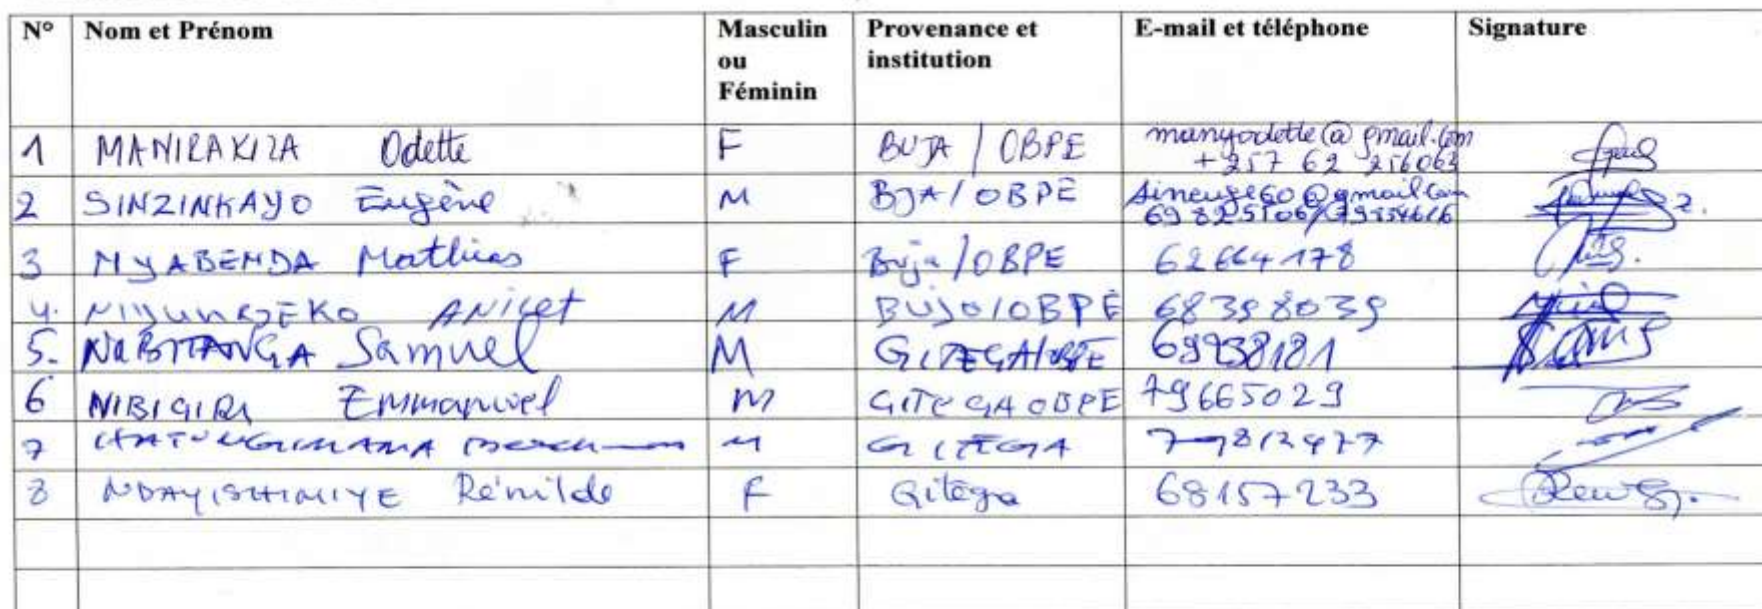 N° Nom et Prénom Masculin ou Féminin Provenance et institution E-mail et téléphone Signature
1 MANIRAKIZA Odette F BUJA / OBPE manyodette@gmail.com
+257 62 256063
2 SINZINKAYO Eugène M BJA/OBPE
69825106/
3 NYABENDA Mathias F Buja/OBPE 62664178
4. ANICET M 68398039
5. Samuel M GITEGA/OBPE 69938181
6 NIBIGIRA Emmanuel M GITEGA OBPE 79665029
7 M GITEGA 79812477
8 NDAYISHIMIYE Rénilde F Gitega 68157233